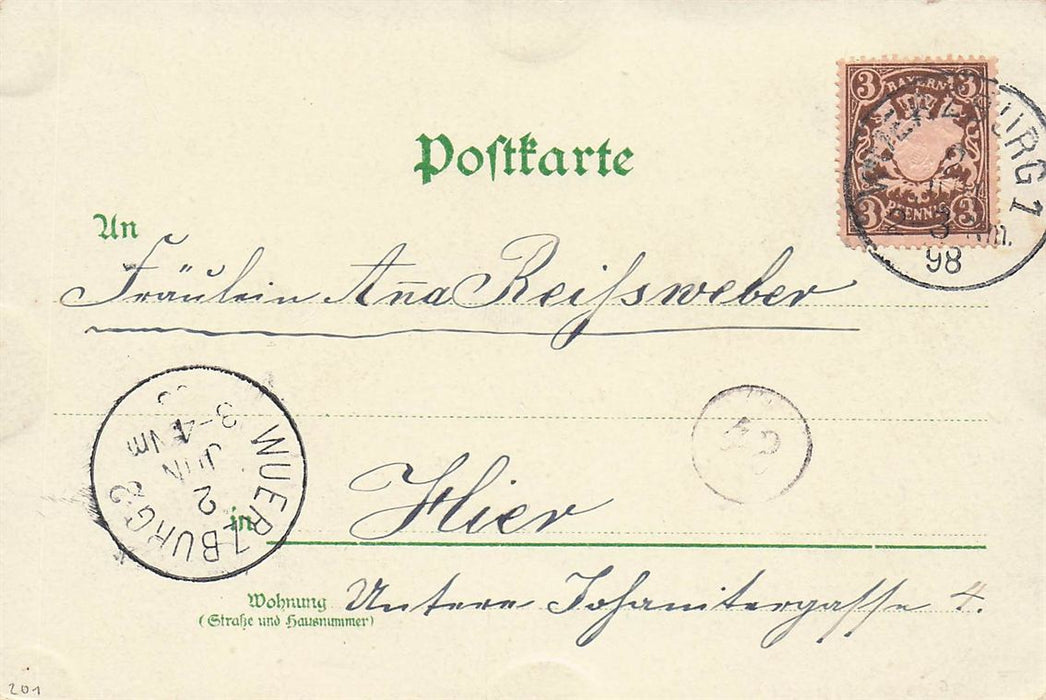 Postkarte
3 BAYERN 3
3 PFENNIG 3
WUERZBURG 1
98
An
Fräulein An̄a Reißsweber
WUERZBURG 2
2
JUN
3-4 Nm
in Hier
Wohnung Untere Johanitergasse 4.
(Straße und Hausnummer)
201